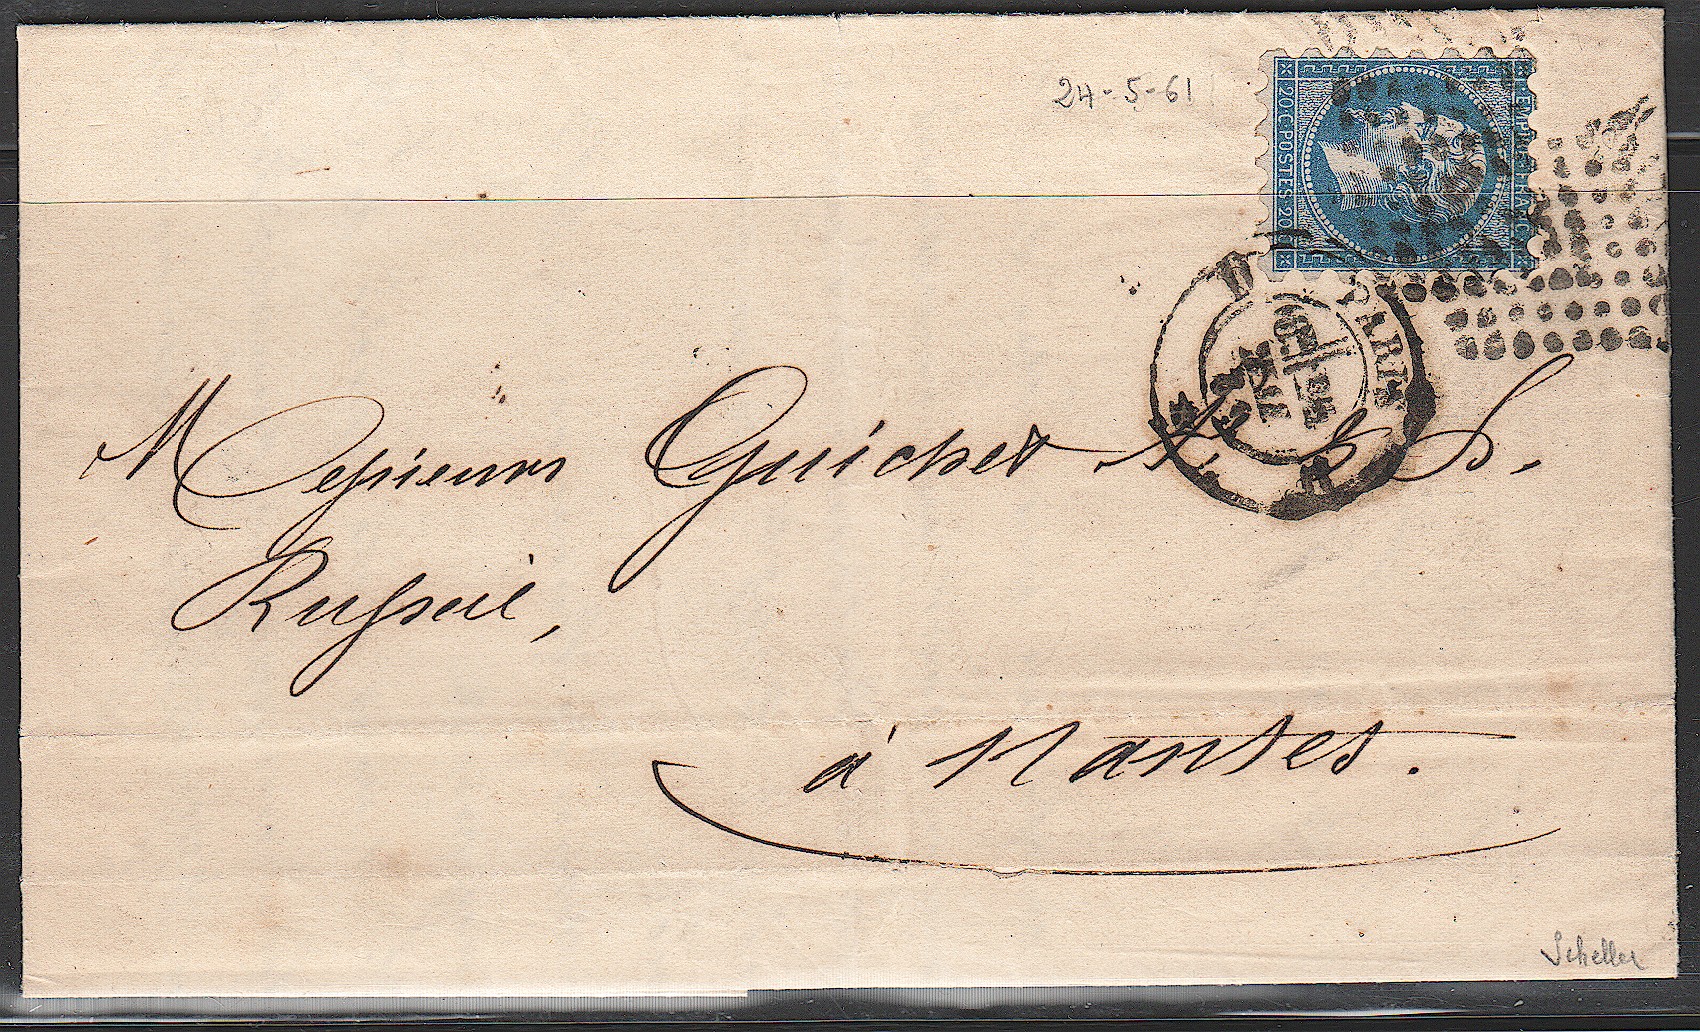 24-5-61
EMPIRE FRANC
20 C. POSTES 20 C.
PARIS
Messieurs Guichet A. & S.
Russeil,
à Nantes.
Scheller